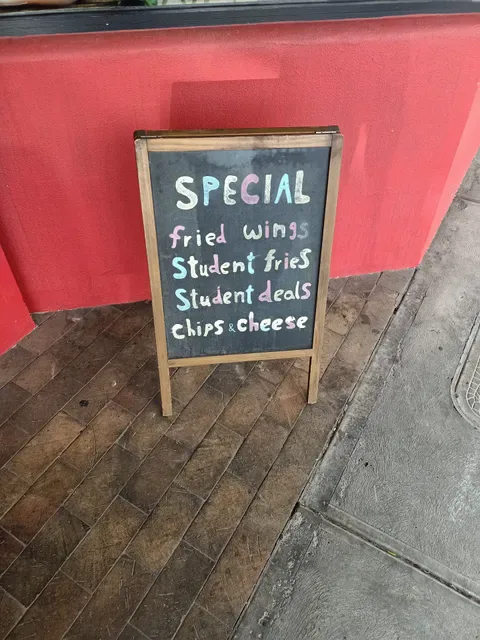 SPECIAL
fried wings
Student fries
Student deals
chips & cheese